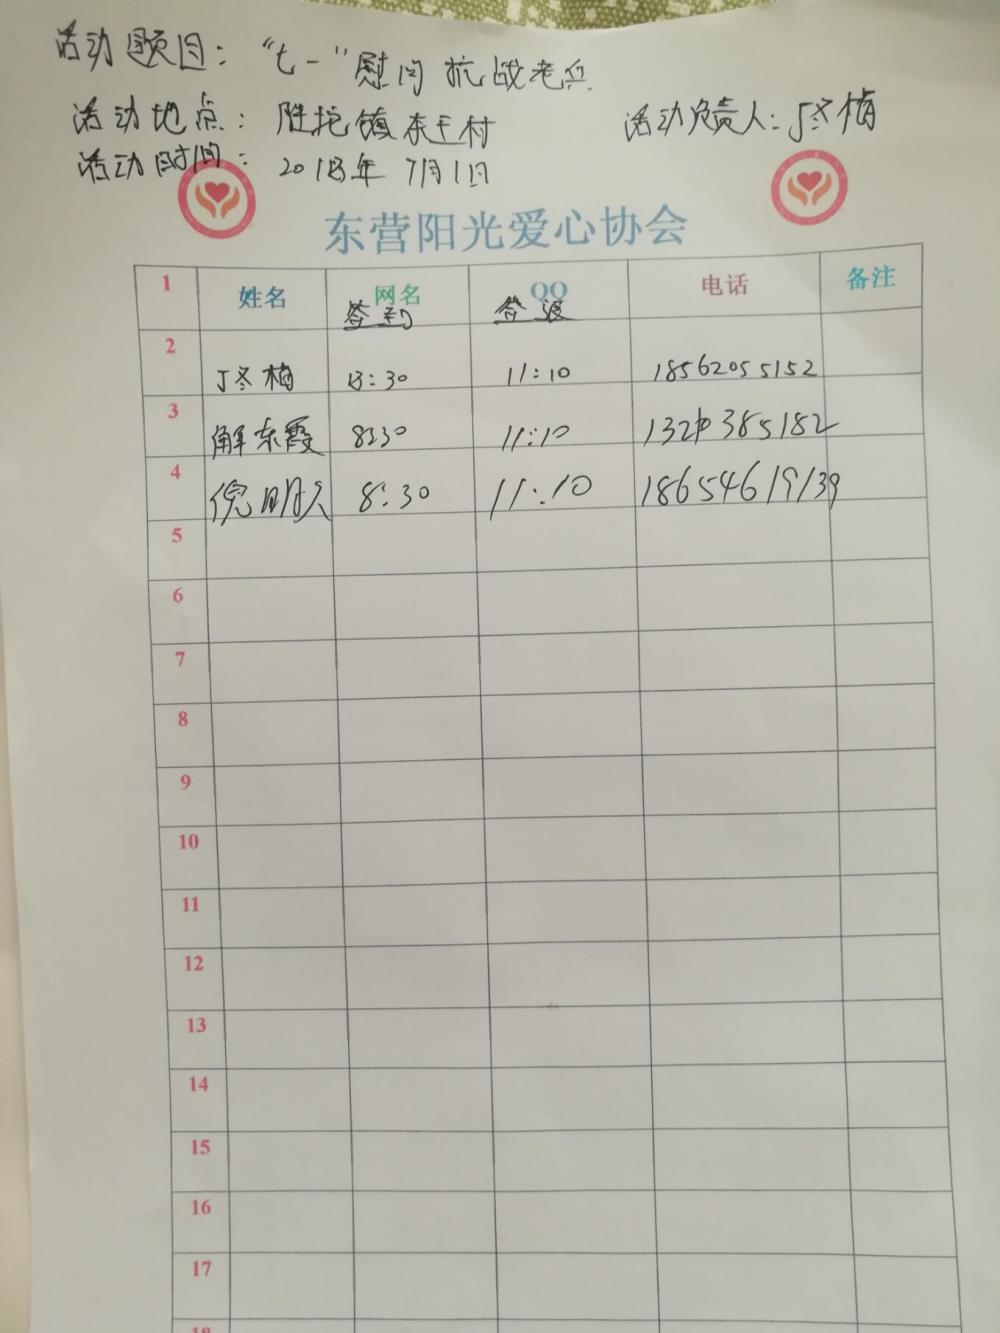 活动题目："七一"慰问抗战老兵
活动地点：胜坨镇东王村 活动负责人：丁冬梅
活动时间：2018年7月1日
东营阳光爱心协会
1 姓名 网名 QQ 电话 备注
签到 签退
2 丁冬梅 8:30 11:10 18562055152
3 解东霞 8:30 11:10 385182
4 倪明 8:30 11:10 18654619139
5
6
7
8
9
10
11
12
13
14
15
16
17
18